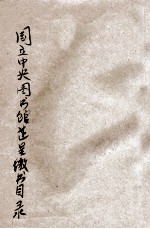 国立中央图书馆善呈缴书目录